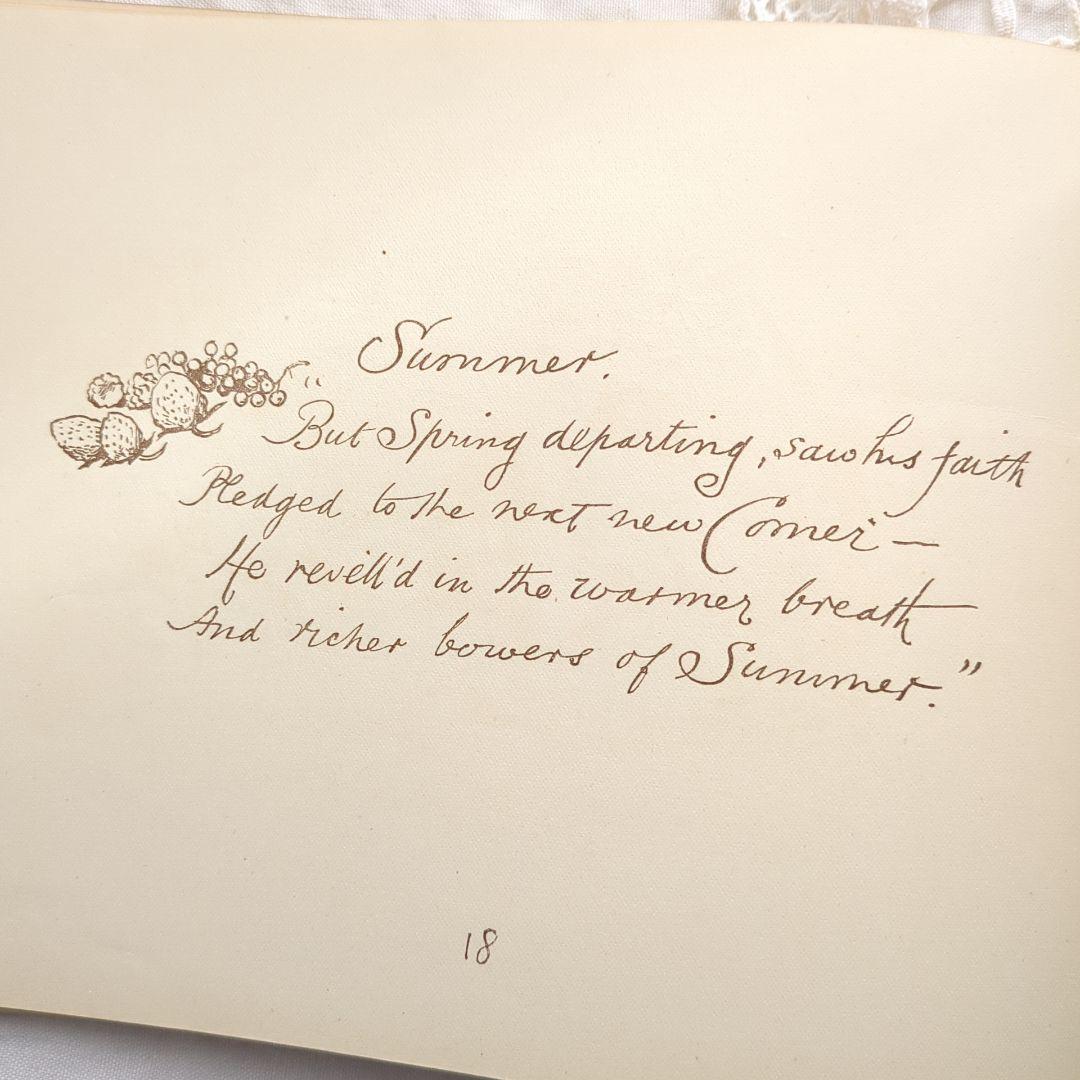 Summer.
"But Spring departing, saw his faith
Pledged to the next new Comer—
He revell'd in the warmer breath
And richer bowers of Summer."
18